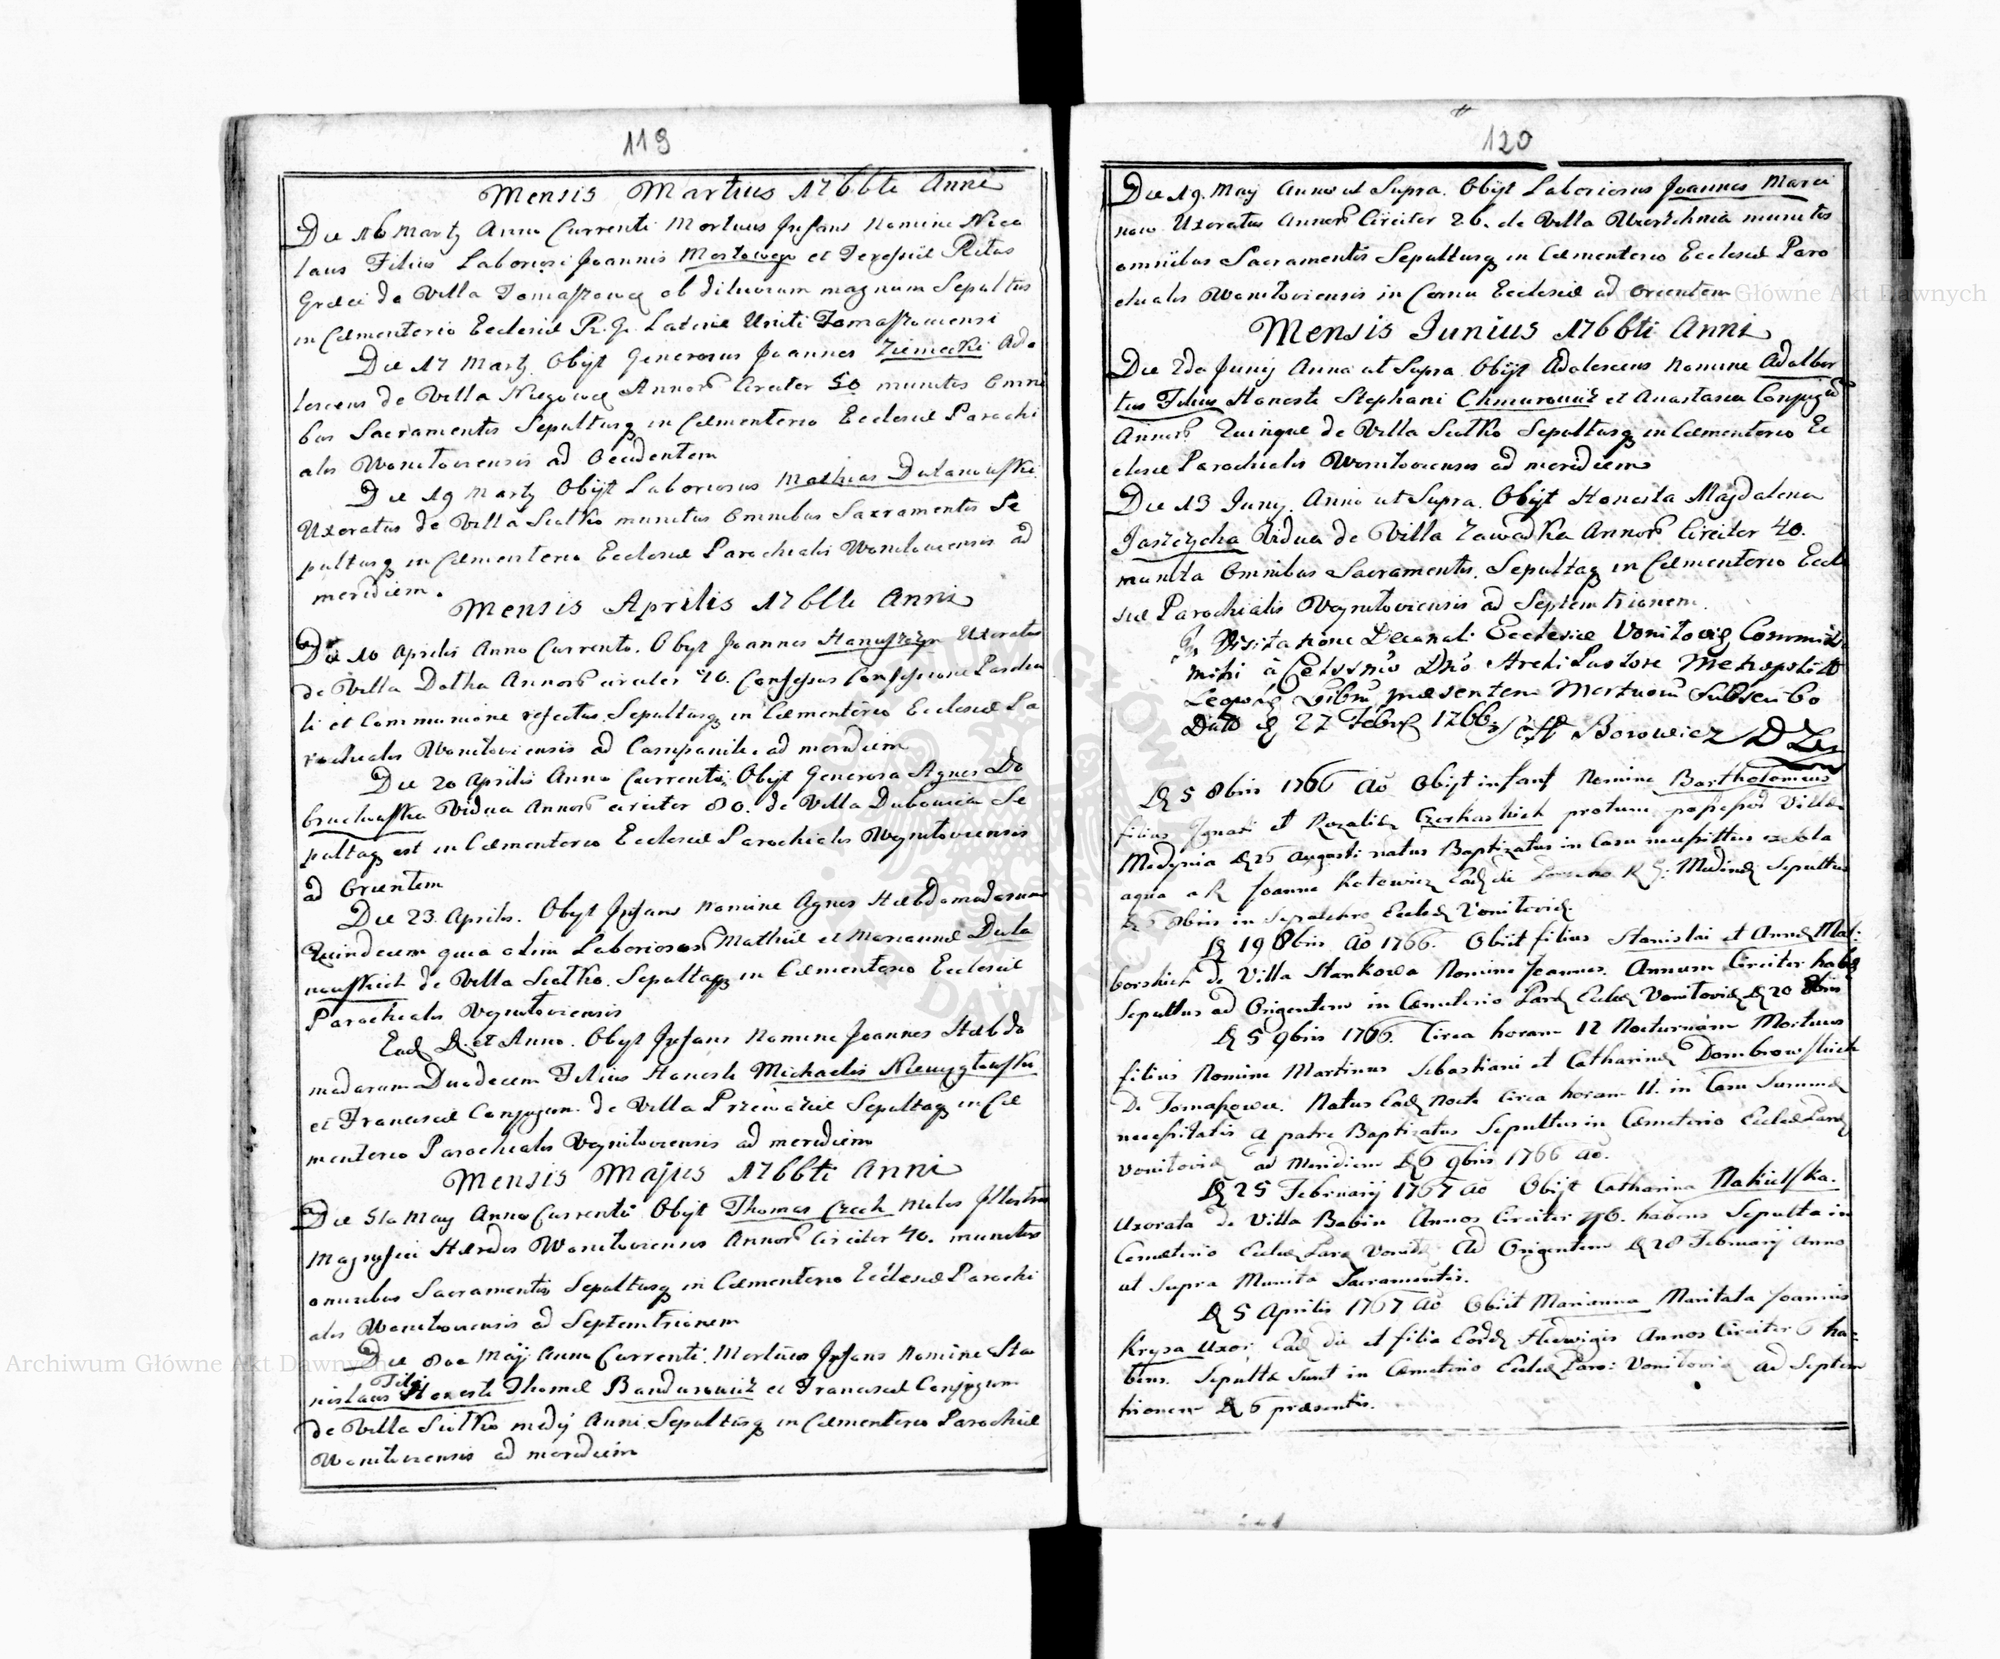 119
Mensis Martius 1766ti Anni
Die 16 Martij Anno Currenti Mortuus Infans Nomine Nico
laus Filius Laboriosi Joannis Mostowego et Teressiæ Ritus
Græci de Villa Tomaszowce ob diluvium magnum Sepultus
in Cæmenterio Ecclesiæ R. G. Latinæ Uniti Tomaszowensi
Die 17 Martij Obijt Generosus Joannes Ziemecki Ado
lescens de Villa Niegowce Annorum Circiter 50 munitus Omni
bus Sacramentis Sepultusq in Cæmenterio Ecclesiæ Parochi
alis Wonitoviensis ad Occidentem
Die 19 Martij Obijt Laboriosus Mathias Dulanowski
Uxoratus de Villa Siolko munitus Omnibus Sacramentis Se
pultusq in Cæmenterio Ecclesiæ Parochialis Wonitoviensis ad
meridiem.
Mensis Aprilis 1766ti Anni
Die 10 Aprilis Anno Currenti. Obijt Joannes Hanuszczyn Uxoratus
de Villa Dolha Annorum circiter 40. Confessus Confessione Pascha
li et Communione refectus. Sepultusq in Cæmenterio Ecclesiæ Pa
rochialis Wonitoviensis ad Campanile ad meridiem
Die 20 Aprilis Anno Currenti Obijt Generosa Agnes Do
bruchowska Vidua Annorum circiter 80. de Villa Dubowica Se
pultaq est in Cæmenterio Ecclesiæ Parochialis Woynitoviensis
ad Orientem
Die 23. Aprilis. Obijt Infans Nomine Agnes Hebdomadarum
Quindecim quia olim Laboriosorum Mathiæ et Mariannæ Dula
nowskich de Villa Siolko. Sepultaq in Cæmenterio Ecclesiæ
Parochialis Woynitoviensis
Ead D. et Anno. Obijt Infans Nomine Joannes Hebdo
madarum Duodecem Filius Honesti Michaelis Niewygłowski
et Franciscæ Conjugum de Villa Przewozie Sepultusq in Cæ
menterio Parochialis Woynitoviensis ad meridiem
Mensis Majus 1766ti Anni
Die 5ta May Anno Currenti Obijt Thomas Czech Miles Illustris
Magnifici Hæredis Wonitoviensis Annorum Circiter 40. munitus
omnibus Sacramentis Sepultusq in Cæmenterio Ecclesiæ Parochi
alis Wonitoviensis ad Septemtrionem
Die 8va Maij Anno Currenti. Mortuus Infans Nomine Sta
nislaus Filius Honesti Thomæ Bandurowicz et Franciscæ Conjugum
de Villa Siolko medij Anni Sepultusq in Cæmenterio Parochiæ
Wonitoviensis ad meridiem
120
Die 19. May Anno ut Supra. Obijt Laboriosus Joannes Marci
now Uxoratus Annorum Circiter 26. de Villa Wierzchnia munitus
omnibus Sacramentis Sepultusq in Cæmenterio Ecclesiæ Paro
chialis Wonitoviensis in Cornu Ecclesiæ ad Orientem
Mensis Junius 1766ti Anni
Die 2da Junij Anno ut Supra Obijt Adolescens Nomine Adalber
tus Filius Honesti Stephani Chmurowicz et Anastasiæ Conjugum
Annorum Quinque de Villa Siolko Sepultusq in Cæmenterio Ec
clesiæ Parochialis Wonitoviensis ad meridiem
Die 13 Junij. Anno ut Supra. Obijt Honesta Magdalena
Jaszczycha Vidua de Villa Zawadka Annorum Circiter 40.
munita Omnibus Sacramentis. Sepultaq in Cæmenterio Eccle
siæ Parochialis Woynitoviensis ad Septemtrionem.
In Visitatione Decanali Ecclesiæ Vonitoviæ Commis
mihi à Celsmo Dno Archi Pastore Metropolit
Leopo Libru præsentem Mortuorū Subscribo
Dato d 27 Febr 1766 Borowicz
D 5 8bris 1766 Ao Obijt infans Nomine Bartholomeus
filius Ignati et Rozaliæ Czerkaskich protunc possessor Villæ
Medynia D 25 Augusti natus Baptizatus in Casu necessittus ex sola
aqua a R Joanne Kotowicz Ead die R G. Medin Sepultus
D 6 8bris in Sepulchro Eccles Vonitovien.
D 19 8bris Ao 1766. Obiit filius Stanislai et Annæ Mal-
borskich de Villa Stankowa Nomine Joannes. Annum Circiter habens
Sepultus ad Origentem in Cæmeterio Par Eccles Vonitovi D 20 8bris
D 5 9bris 1766. Circa horam 12 Nocturnam Mortuus
filius Nomine Martinus Sebastiani et Catharinæ Dombrowskich
De Tomaszowce. Natus Ead Nocte Circa horam 11. in Casu Summæ
necessitatis a patre Baptizatus Sepultus in Cæmeterio Eccles Par
Vonitovi ad Meridiem D 6 9bris 1766 Ao.
D 25 Februarij 1767 Ao Obijt Catharina Nakielska.
Uxorata de Villa Babin Annos Circiter 46. habens Sepulta in
Cemeterio Eccles Par Vonit Ad Origentem D 28 Februarij Anno
ut Supra Munita Sacramentis.
D 5 Aprilis 1767 Ao Obiit Marianna Maritata Joannis
Krysa Uxor Ead die et filia Eord Hedwigis Annos Circiter 6 ha-
bens. Sepultæ Sunt in Cæmeterio Eccles Paro: Vonitovi ad Septem
trionem D 6 præsentis.
Archiwum Główne Akt Dawnych
Archiwum Główne Akt Dawnych